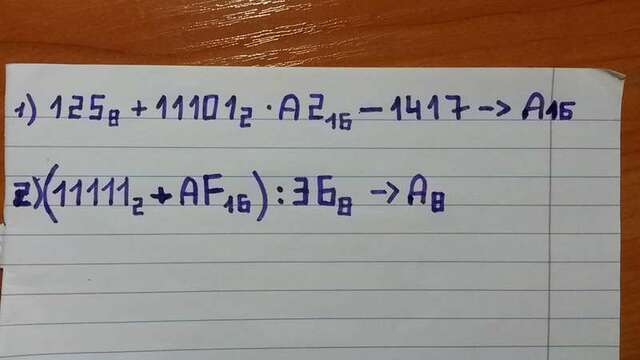 1) 125₈ + 11101₂ · A2₁₆ − 1417 → A₁₆
2) (11111₂ + AF₁₆) : 36₈ → A₈